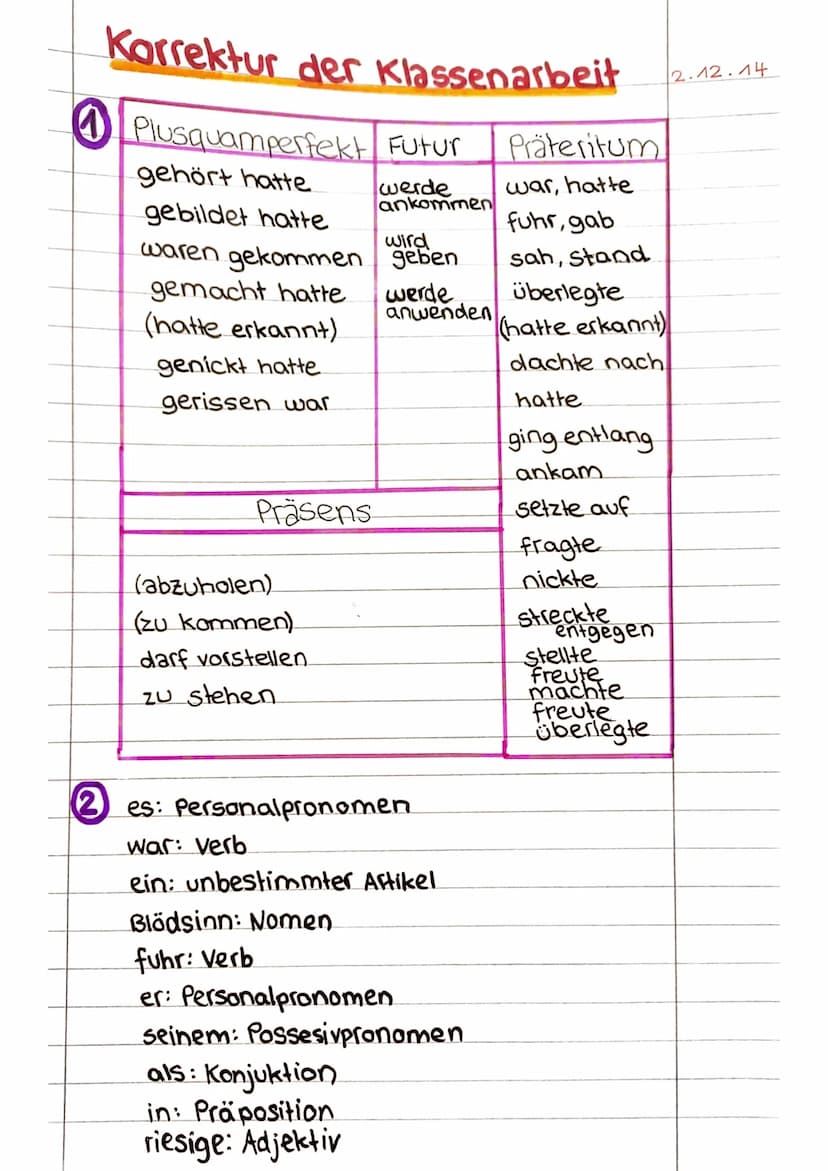 Korrektur der Klassenarbeit
2.12.14
1
Plusquamperfekt
gehört hatte
gebildet hatte
waren gekommen
gemacht hatte
(hatte erkannt)
genickt hatte
gerissen war
Futur
werde
ankommen
wird
geben
werde
anwenden
Präteritum
war, hatte
fuhr, gab
sah, stand
überlegte
(hatte erkannt)
dachte nach
hatte
ging entlang
ankam
setzte auf
fragte
nickte
streckte
entgegen
stellte
freute
machte
freute
überlegte
Präsens
(abzuholen)
(zu kommen)
darf vorstellen
zu stehen
2
es: Personalpronomen
war: Verb
ein: unbestimmter Artikel
Blödsinn: Nomen
fuhr: Verb
er: Personalpronomen
seinem: Possesivpronomen
als: Konjuktion
in: Präposition
riesige: Adjektiv